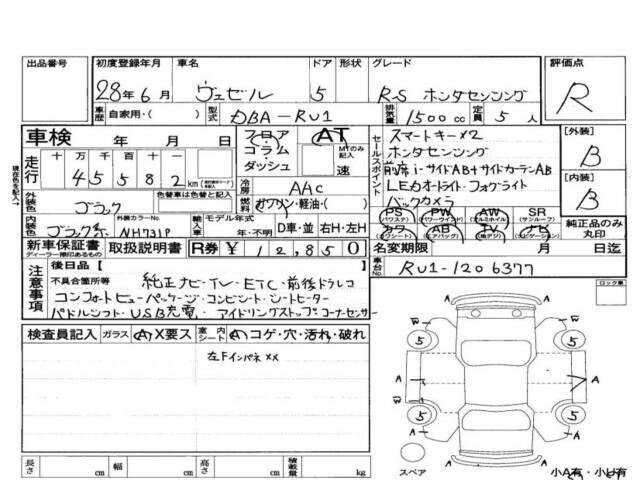 出品番号 初度登録年月 車名 ドア 形状 グレード 評価点
28年6月 ヴェゼル 5 RS ホンダセンシング R
車歴 自家用・( ) 型式 DBA-RU1 排気量 1500cc 定員 5人
車検 年 月 日 フロア コラム ダッシュ AT MTのみ記入 速
セールスポイント スマートキー×2
ホンダセンシング
前席i-サイドAB+サイドカーテンAB
LEDオートライト・フォグライト
バックカメラ
[外装] B
[内装] B
走行 十 万 千 百 十 一
45582km
現在色を記入→
外装色 ブラック 色替車は色替と記入
冷房 AAC
燃料 ガソリン・軽油・( )
内装色 ブラック系 外装カラーNo. NH731P
輸入車 モデル年式 年・不明 D車・並 右H・左H
PS (パワステ) PW (パワーウインド) AW (アルミホイル) SR (サンルーフ)
カワ (カワシート) AB (エアバッグ) TV ナビ (ナビゲーション)
純正品のみ丸印
新車保証書 ディーラー捺印あるもの 取扱説明書 R券 ¥12,850
名変期限 月 日迄
車台No. RU1-1206377
注意事項 後日品【 】
不具合箇所等 純正ナビ・TV・ETC・前後ドラレコ
コンフォートビューパッケージ・コンビシート・シートヒーター
パドルシフト・USB充電・アイドリングストップ・コーナーセンサー
ロック車
検査員記入 ガラス (A)X要ス 室内シート (A) コゲ・穴・汚れ・破れ
左Fインパネ××
W W
5 5
A A A A
5 5
W W
A A
スペア
小A有・小U有
長さ cm 幅 cm 高さ cm 積載量 kg